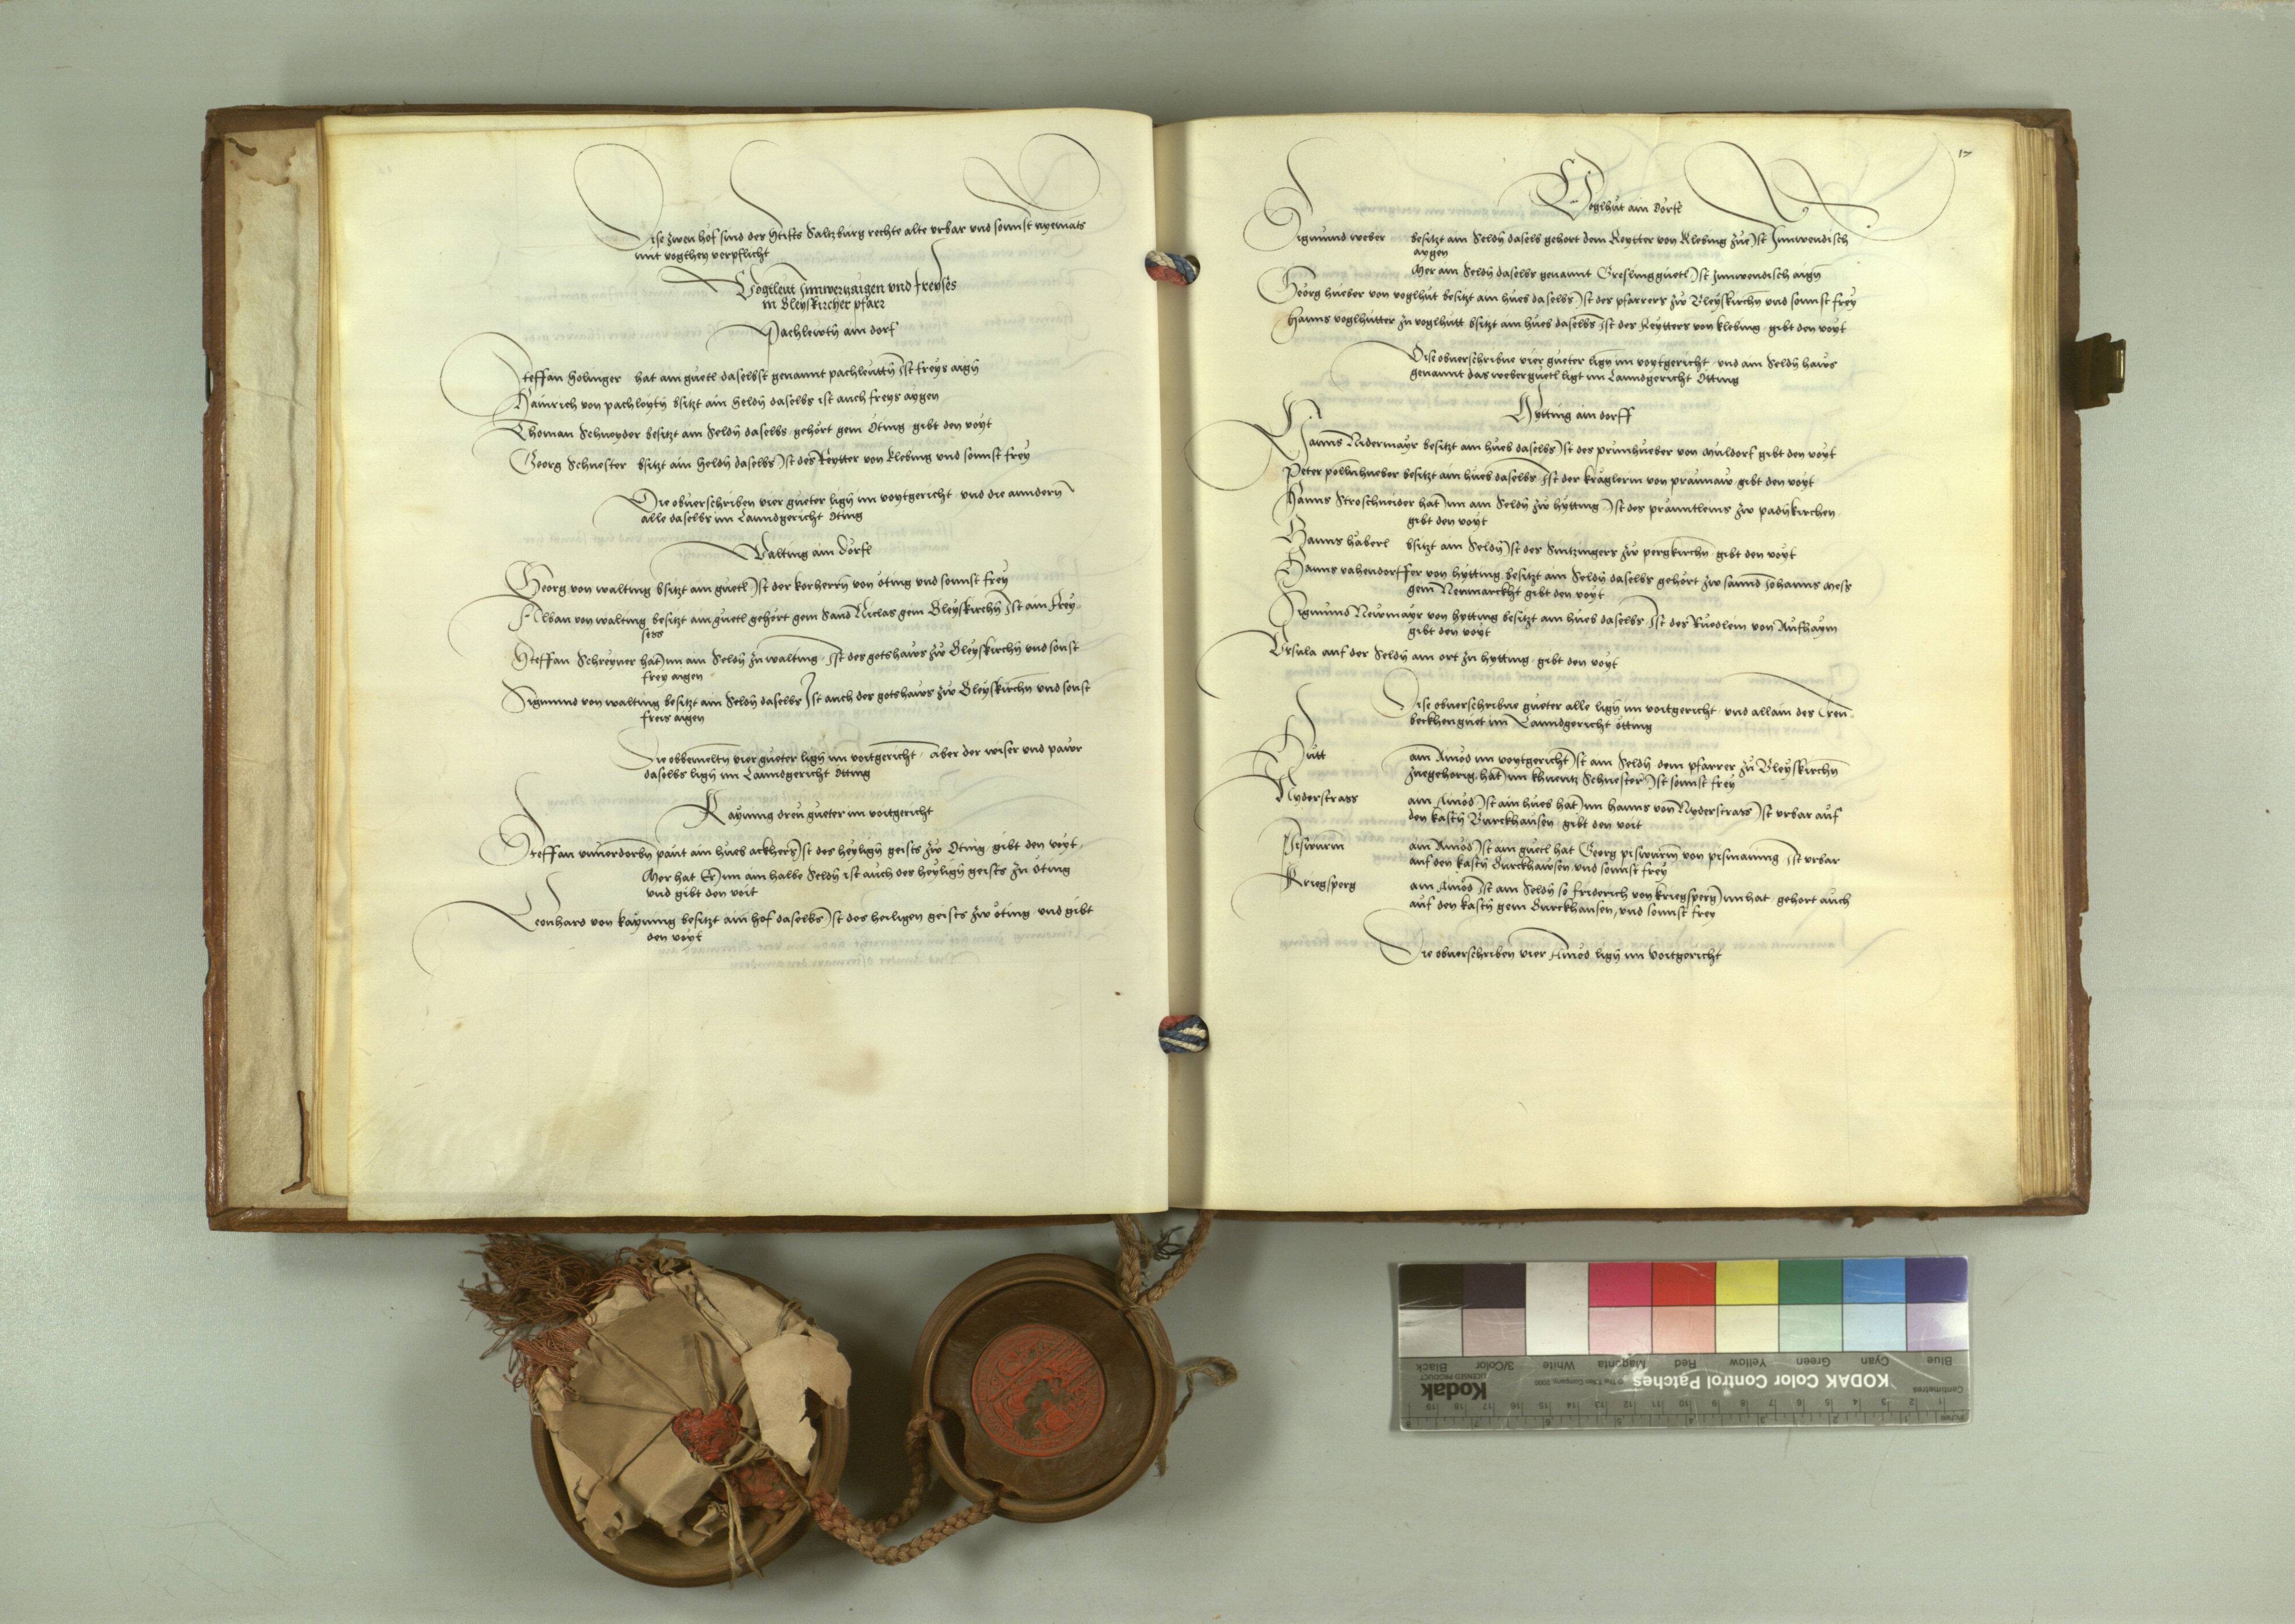 Dise zwen hof sind des Stiffts Saltzburg rechte alte vrbar vnd sonnst nyemats
mit vogthey verpflicht
Vogtleut Innwerzaigen vnd freyses
in Pleyskircher pfarr
Pachlewtn ain dorf
Steffan Holinger hat ain guetl daselbst genannt pachleuttn Ist freys aign
Hainrich von pachleytn bsitzt ain Seldn daselbs ist auch freys aygen
Thoman Schneyder besitzt ain Seldn daselbs gehört gem Öting gibt den voyt
Georg Schuester bsitzt ain Seldn daselbs Ist des Reytter von Klebing vnd sonnst frey
Die obuerschriben vier gueter lign im voytgericht vnd die anndern
alle daselbs im Lanndgericht Öting
Walting ain dörfl
Georg von walting bsitzt ain guetl Ist der korherrn von öting vnd sonnst frey
Alban von walting besitzt ain guetl gehört gem Sand Niclas gem Pleyskirchn Ist ain frey
sess
Steffan Schreyner hat Inn ain Seldn zu walting Ist des gotshaws zw Pleyskirchn vnd sonst
frey aigen
Sigmund von walting besitzt ain Seldn daselbs Ist auch des gotshaws zw Pleyskirchn vnd sonst
freis aigen
Die obbemeltn vier gueter lign im voitgericht aber der wiser vnd pawr
daselbs lign im Lanndgericht Otting
Kayning dreu gueter im voitgericht
Steffan vnnerdorbn paut ain hueb ackhers Ist des heylign geists zw Öting gibt den voyt
Mer hat Er Inn ain halbe Seldn ist auch des heylign geists zu öting
vnd gibt den voit
Leonhard von kayning besitzt ain hof daselbs Ist des heiligen geists zw öting vnd gibt
den voyt
17
Voglhut ain dörfl
Sigmund weber besitzt ain Seldn daselbs gehört dem Reytter von Klebing zue Ist Innwendisch
aygen
Mer ain Seldn daselbs genannt Greslingguetl Ist Innwendisch aign
Georg hueber von voglhut besitzt ain hueb daselbs Ist des pfarrers zw Pleyskirchn vnd sonnst frey
Hanns voglhutter zu voglhutt bsitzt ain hueb daselbs Ist des Reytters von klebing gibt den voyt
Dise obuerschribne vier gueter lign im voytgericht vnd ain Seldn haws
genannt das weberguetl ligt im Lanndgericht Otting
Hytting ain dorff
Hanns Nidermayr besitzt ain hueb daselbs Ist des prunhueber von Muldorf gibt den voyt
Peter polbnhueber besitzt ain hueb daselbs Ist der kräglerin von praunaw gibt den voyt
Hanns Stroschneider hat Inn ain Seldn zw hytting Ist des präuntleins zw padykirchen
gibt den voyt
Hanns häberl bsitzt ain Seldn Ist des Sintzingers zw pergkirchn gibt den voyt
Hanns vahendorffer von hytting besitzt ain Seldn daselbs gehört zw sannd Johanns Mess
gem Neumarckht gibt den voyt
Sigmund Newmayr von hytting besitzt ain hueb daselbs Ist des Ruedlein von Aufhaym
gibt den voyt
Vrsula auf der Seldn am ort zu hytting gibt den voyt
Dise obuerschribne gueter alle lign im voitgericht vnd allain des Tren
beckhen guet im Lanndgericht otting
Hutt ain Ainöd im voytgericht Ist ain Seldn dem pfarrer zu Pleyskirchn
zuegehörig hat Inn khuentz Schuester Ist sonnst frey
Nyderstrass ain Ainöd Ist ain hueb hat Inn hanns von Nyderstrass Ist vrbar auf
den kastn Burckhausen gibt den voit
Piswurm ain Ainöd Ist ain guetl hat Georg piswurm von pismaning Ist vrbar
auf den kastn Burckhawsen vnd sonnst frey
Kriegsperg ain Ainöd Ist ain Seldn so friderich von kriegsperg Inn hat gehört auch
auf den kastn gem Burckhausen vnd sonnst frey
Die obuerschriben vier Ainöd lign im voitgericht
KODAK Color Control Patches
Kodak
LICENSED PRODUCT
Black
3/Color
White
Magenta
Red
Yellow
Green
Cyan
Blue
Centimetres
Inches